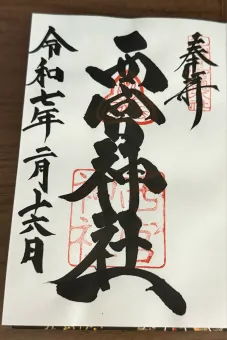 奉拝
西宮神社
令和七年二月十六日